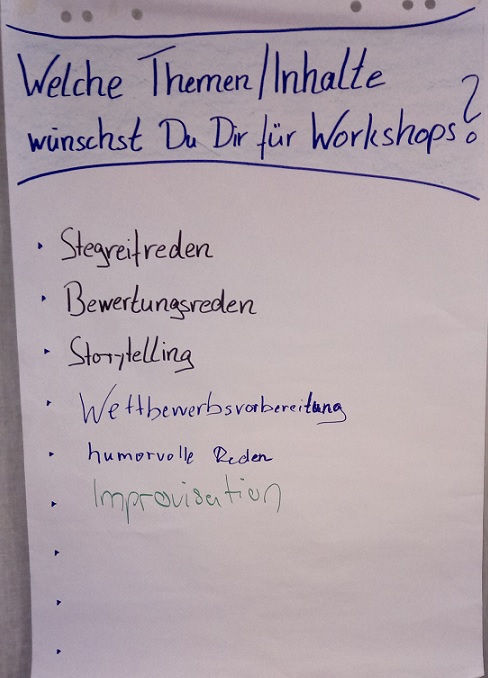 Welche Themen/Inhalte
wünschst Du Dir für Workshops?
Stegreifreden
Bewertungsreden
Storytelling
Wettbewerbsvorbereitung
humorvolle Reden
Improvisation